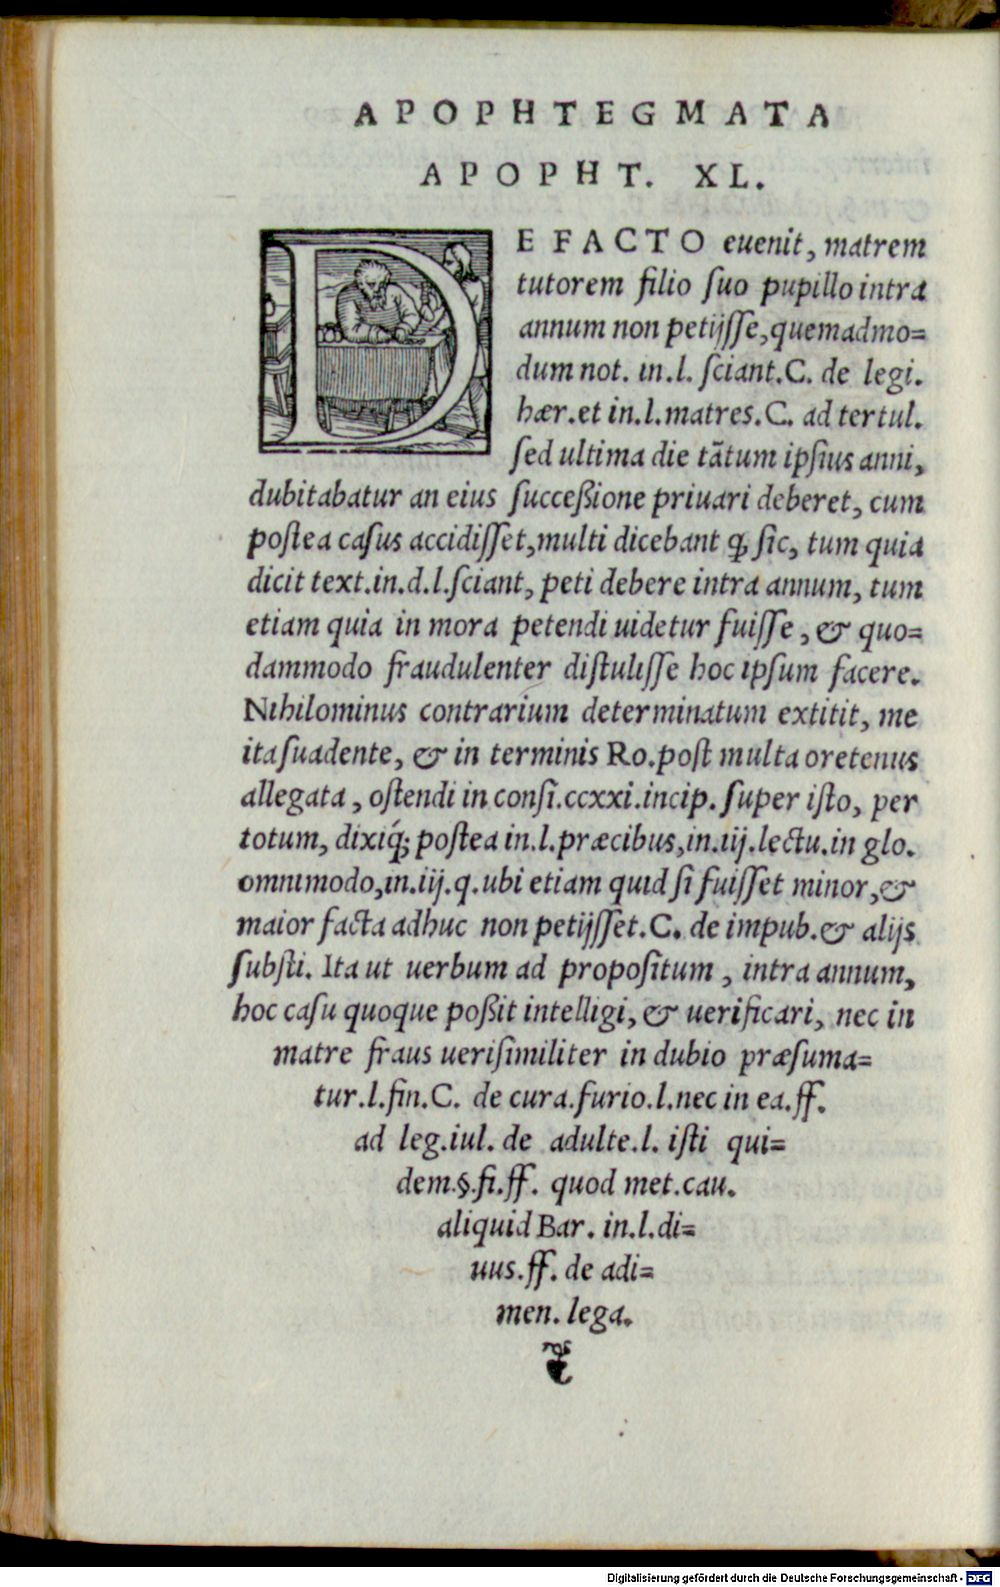 APOPHTEGMATA
APOPHT. XL.
DE FACTO euenit, matrem
tutorem filio ſuo pupillo intra
annum non petijſſe, quemadmo=
dum not. in.l. ſciant.C. de legi.
hær.et in.l.matres.C. ad tertul.
ſed ultima die tãtum ipſius anni,
dubitabatur an eius ſucceßione priuari deberet, cum
poſtea caſus accidiſſet, multi dicebant ꝙ ſic, tum quia
dicit text.in.d.l.ſciant, peti debere intra annum, tum
etiam quia in mora petendi uidetur fuiſſe, & quo=
dammodo fraudulenter diſtuliſſe hoc ipſum facere.
Nihilominus contrarium determinatum extitit, me
ita ſuadente, & in terminis Ro.poſt multa oretenus
allegata, oſtendi in conſi.ccxxi.incip. ſuper iſto, per
totum, dixiq́; poſtea in.l.præcibus,in.iij.lectu.in glo.
omnimodo,in.iij.q.ubi etiam quid ſi fuiſſet minor, &
maior facta adhuc non petijſſet.C. de impub.& alijs
ſubſti. Ita ut uerbum ad propoſitum, intra annum,
hoc caſu quoque poßit intelligi, & uerificari, nec in
matre fraus ueriſimiliter in dubio præſuma=
tur.l.fin.C. de cura.furio.l.nec in ea.ff.
ad leg.iul. de adulte.l. iſti qui=
dem.§.fi.ff. quod met.cau.
aliquid Bar. in.l.di=
uus.ff. de adi=
men. lega.
Digitalisierung gefördert durch die Deutsche Forschungsgemeinschaft - DFG